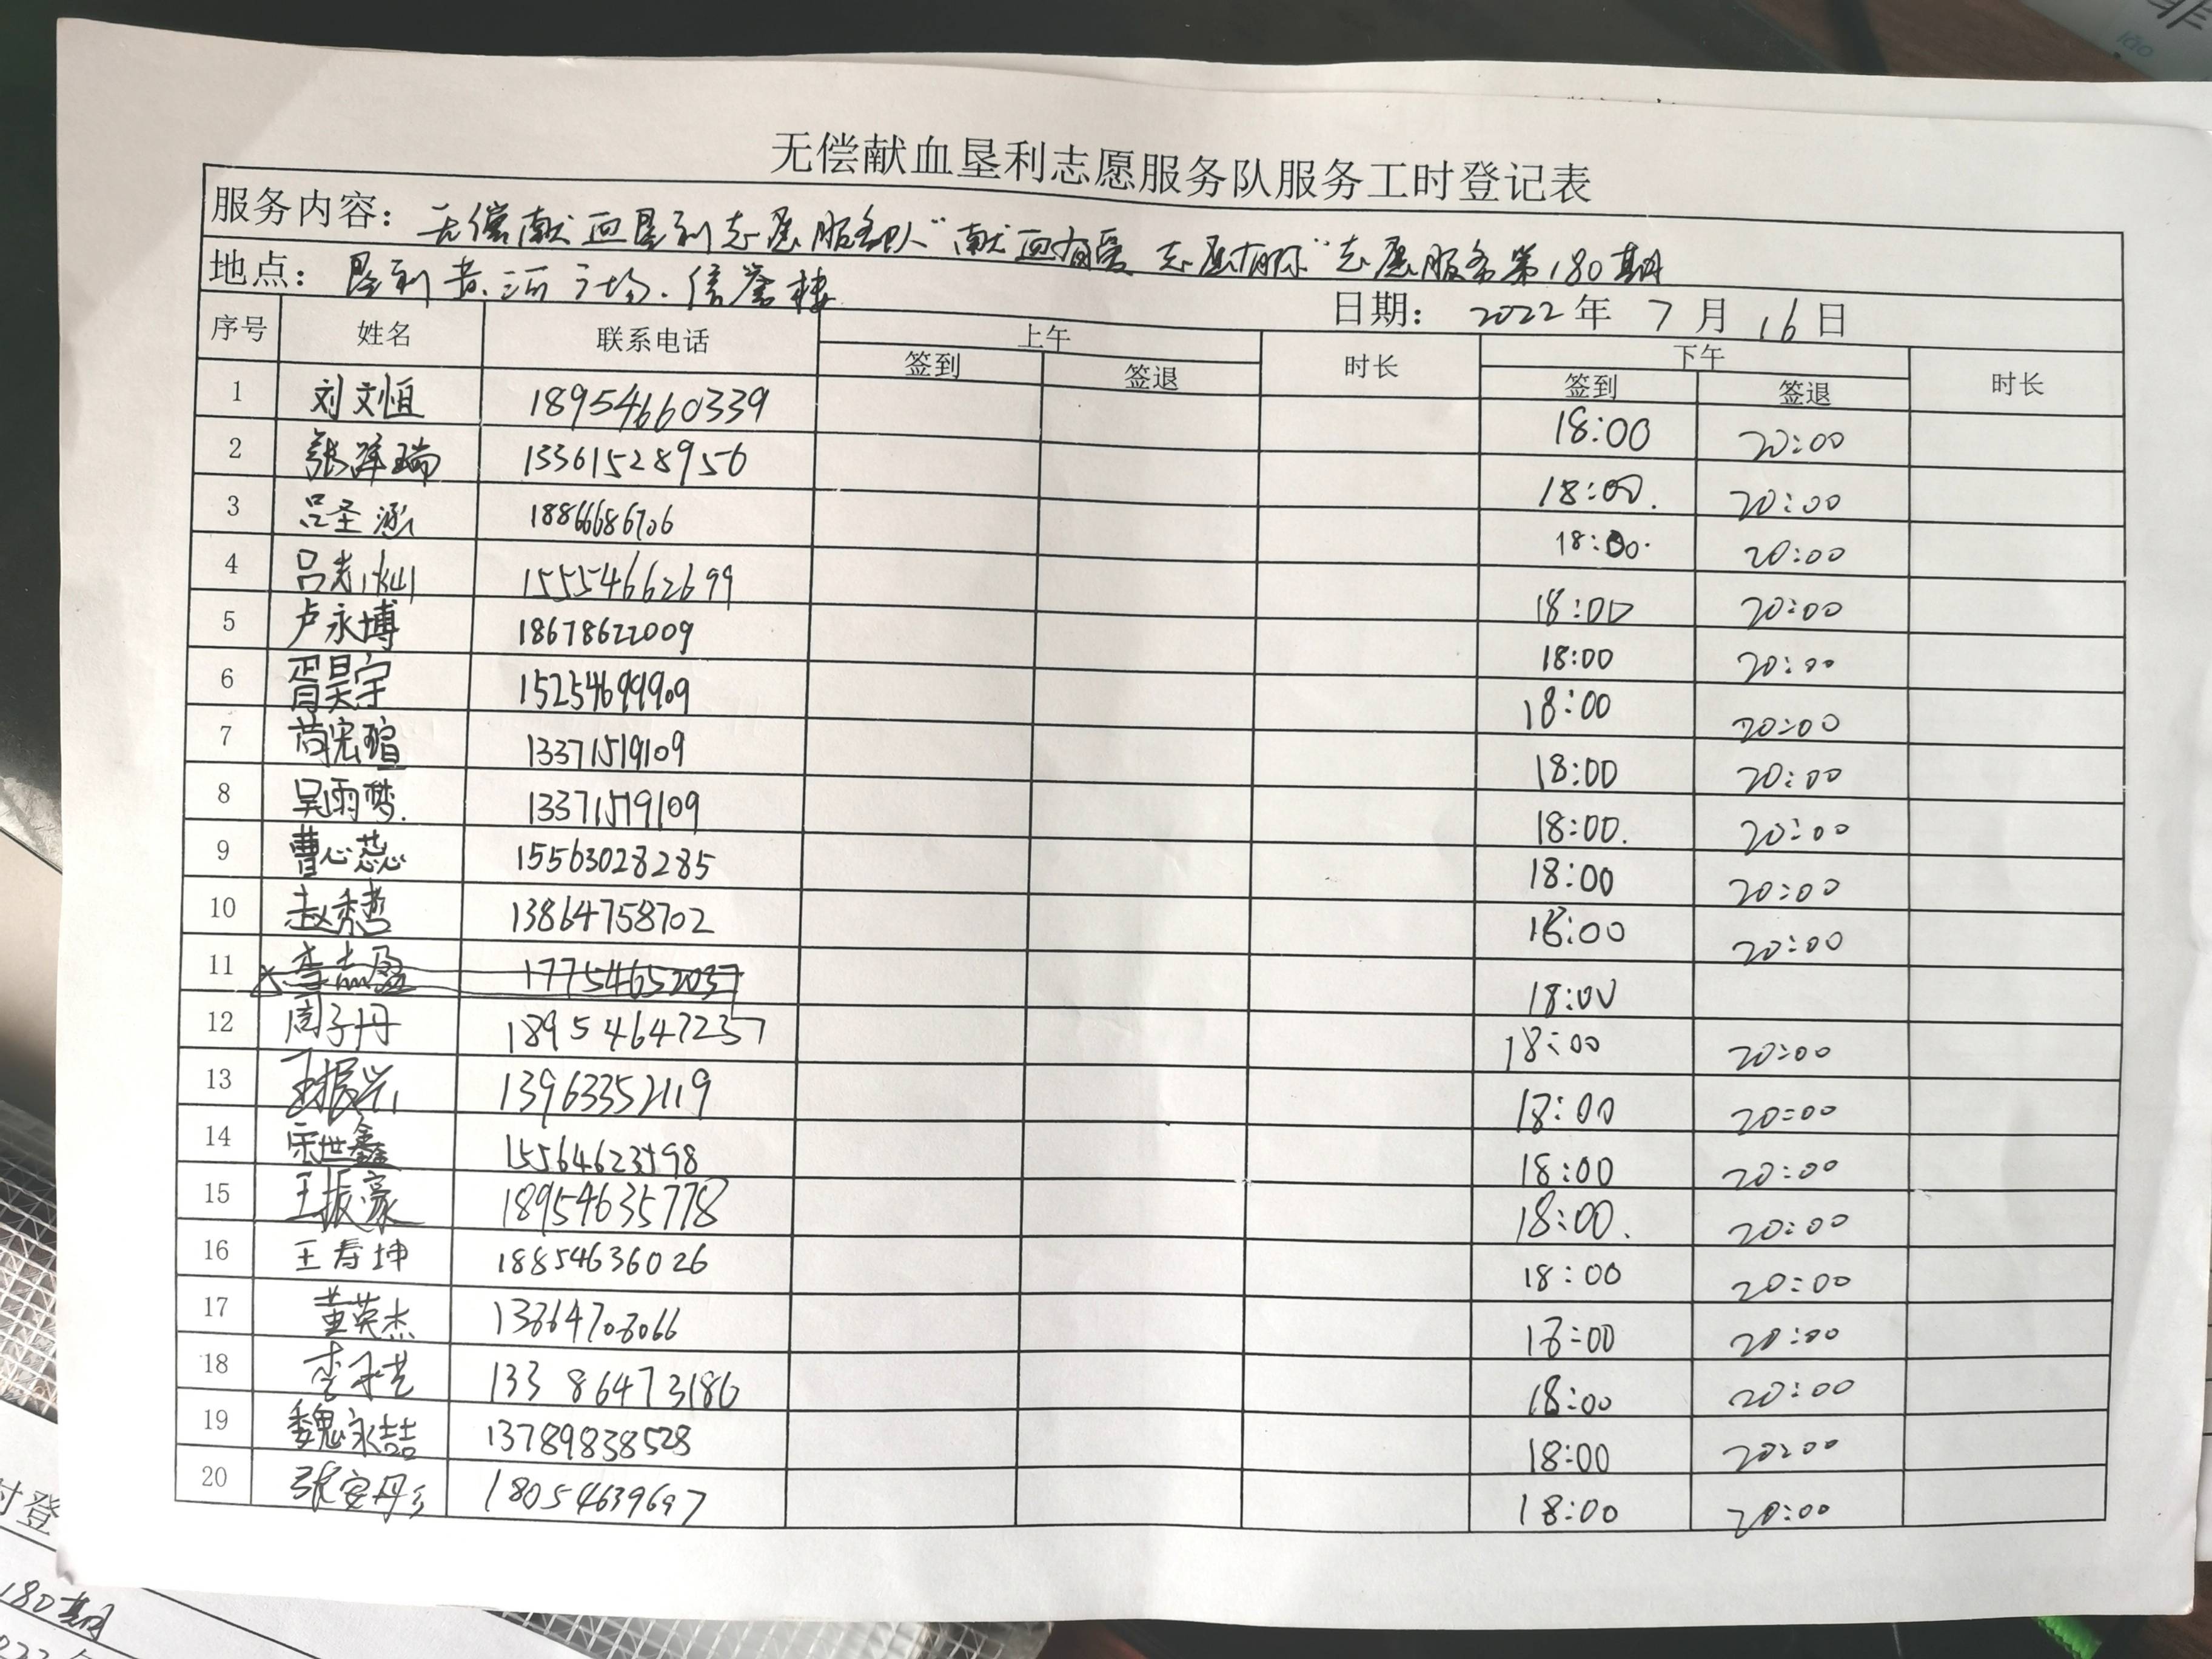 无偿献血垦利志愿服务队服务工时登记表
服务内容：无偿献血垦利志愿服务队“献血有爱 志愿有你”志愿服务第180期
地点：垦利黄河广场.信誉楼 日期：2022年7月16日
序号 姓名 联系电话 上午 时长 下午 时长
签到 签退 签到 签退
1 刘文恒 18954660339 18:00 20:00
2 张泽瑞 13361528956 18:00. 20:00
3 吕圣涵 18866686706 18:00. 20:00
4 吕光灿 15554662699 18:00 20:00
5 卢永博 18678622009 18:00 20:00
6 胥昊宇 15254699909 18:00 20:00
7 苘宏瑄 13371519109 18:00 20:00
8 吴雨梦. 13371519109 18:00. 20:00
9 曹心蕊 15563028285 18:00 20:00
10 赵秀哲 13864758702 18:00 20:00
11 李志盈 17754652037 18:00
12 周子丹 18954647237 18:00 20:00
13 王振兴 13963352119 18:00 20:00
14 宋世鑫 15564623598 18:00 20:00
15 王振豪 18954635778 18:00. 20:00
16 王寿坤 18854636026 18:00 20:00
17 董英杰 13864708066 18:00 20:00
18 李 133 86473186 18:00 20:00
19 魏永喆 13789838528 18:00 20:00
20 张安丹 18054639697 18:00 20:00
时登
180期